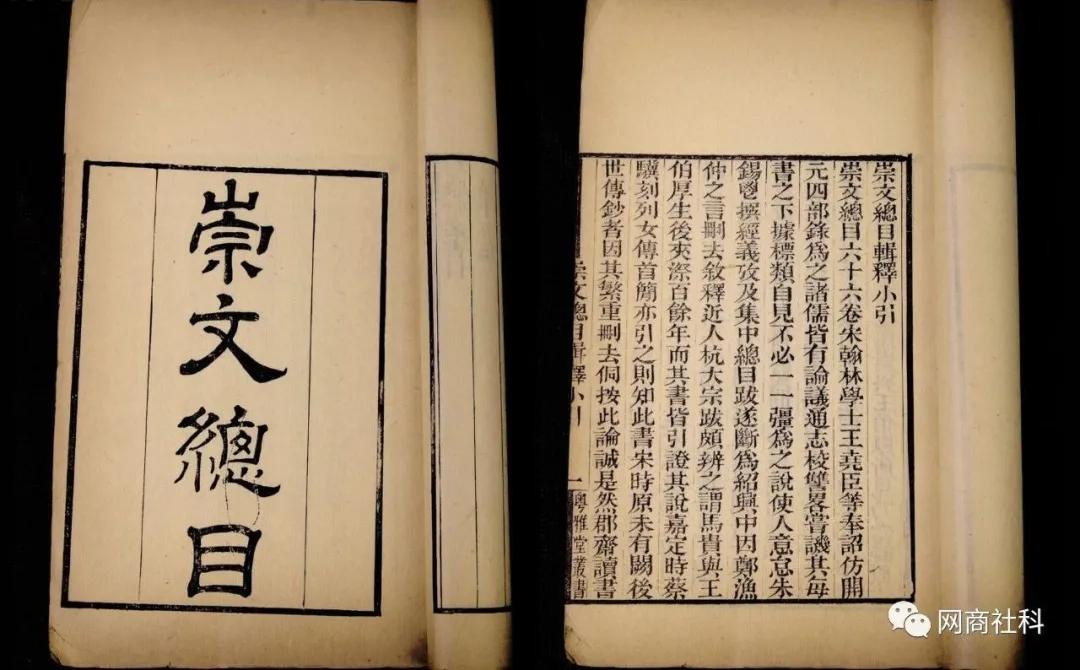 崇文總目
崇文總目輯釋小引
崇文總目六十六卷宋翰林學士王堯臣等奉詔仿開
元四部錄爲之諸儒皆有論議通志校讐畧嘗譏其每
書之下據標類自見不必一一彊爲之說使人意怠朱
錫鬯撰經義攷及集中總目跋遂斷爲紹興中因鄭漁
仲之言刪去敘釋近人杭大宗跋頗辨之謂馬貴與王
伯厚生後夾漈百餘年而其書皆引證其說嘉定時蔡
驥刻列女傳首簡亦引之則知此書宋時原未有闕後
世傳鈔者因其繁重刪去侗按此論誠是然郡齋讀書
崇文總目輯釋小引 一 粵雅堂叢書
网商社科